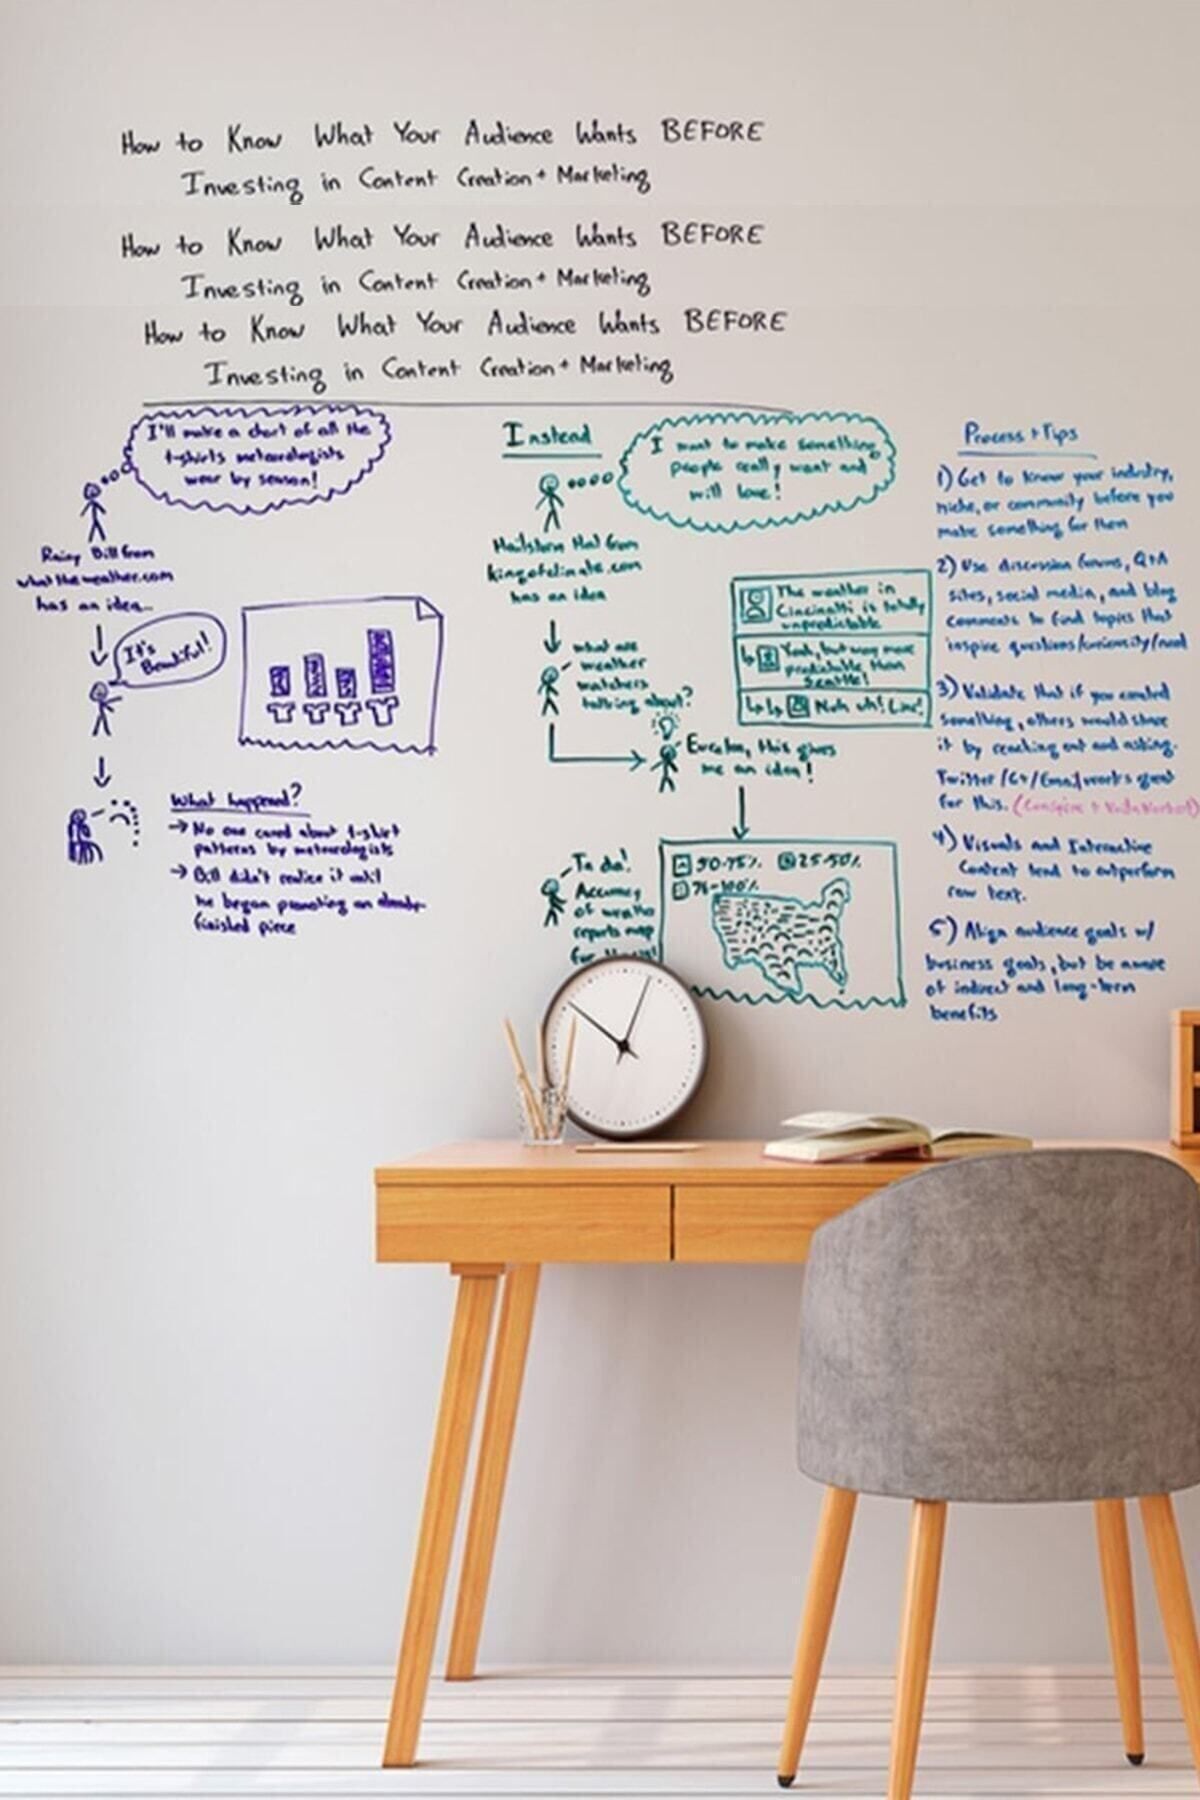 How to Know What Your Audience Wants BEFORE
Investing in Content Creation + Marketing
How to Know What Your Audience Wants BEFORE
Investing in Content Creation + Marketing
How to Know What Your Audience Wants BEFORE
Investing in Content Creation + Marketing
I'll make a chart of all the
t-shirts meteorologists
wear by season!
Rainy Bill from
whattheweather.com
has an idea...
It's
Beautiful!
What happened?
→ No one cared about t-shirt
patterns by meteorologists
→ Bill didn't realize it until
he began promoting an already-
finished piece
Instead
I want to make something
people really want and
will love!
Hailstorm Hal from
kingofclimate.com
has an idea
what are
weather
watchers
talking about?
The weather in
Cincinatti is totally
unpredictable
Yeah, but way more
predictable than
Seattle!
Nuh uh! Line!
Eureka, this gives
me an idea!
Ta da!
Accuracy
of weather
reports map
for the
50-75% 25-50%
76-100%
Process + Tips
1) Get to know your industry,
niche, or community before you
make something for them
2) Use discussion forums, Q+A
sites, social media, and blog
comments to find topics that
inspire questions/curiosity/need
3) Validate that if you created
something, others would share
it by reaching out and asking.
Twitter/G+/Email works great
for this. (Conspire +
4) Visuals and Interactive
Content tend to outperform
raw text.
5) Align audience goals w/
business goals, but be aware
of indirect and long-term
benefits